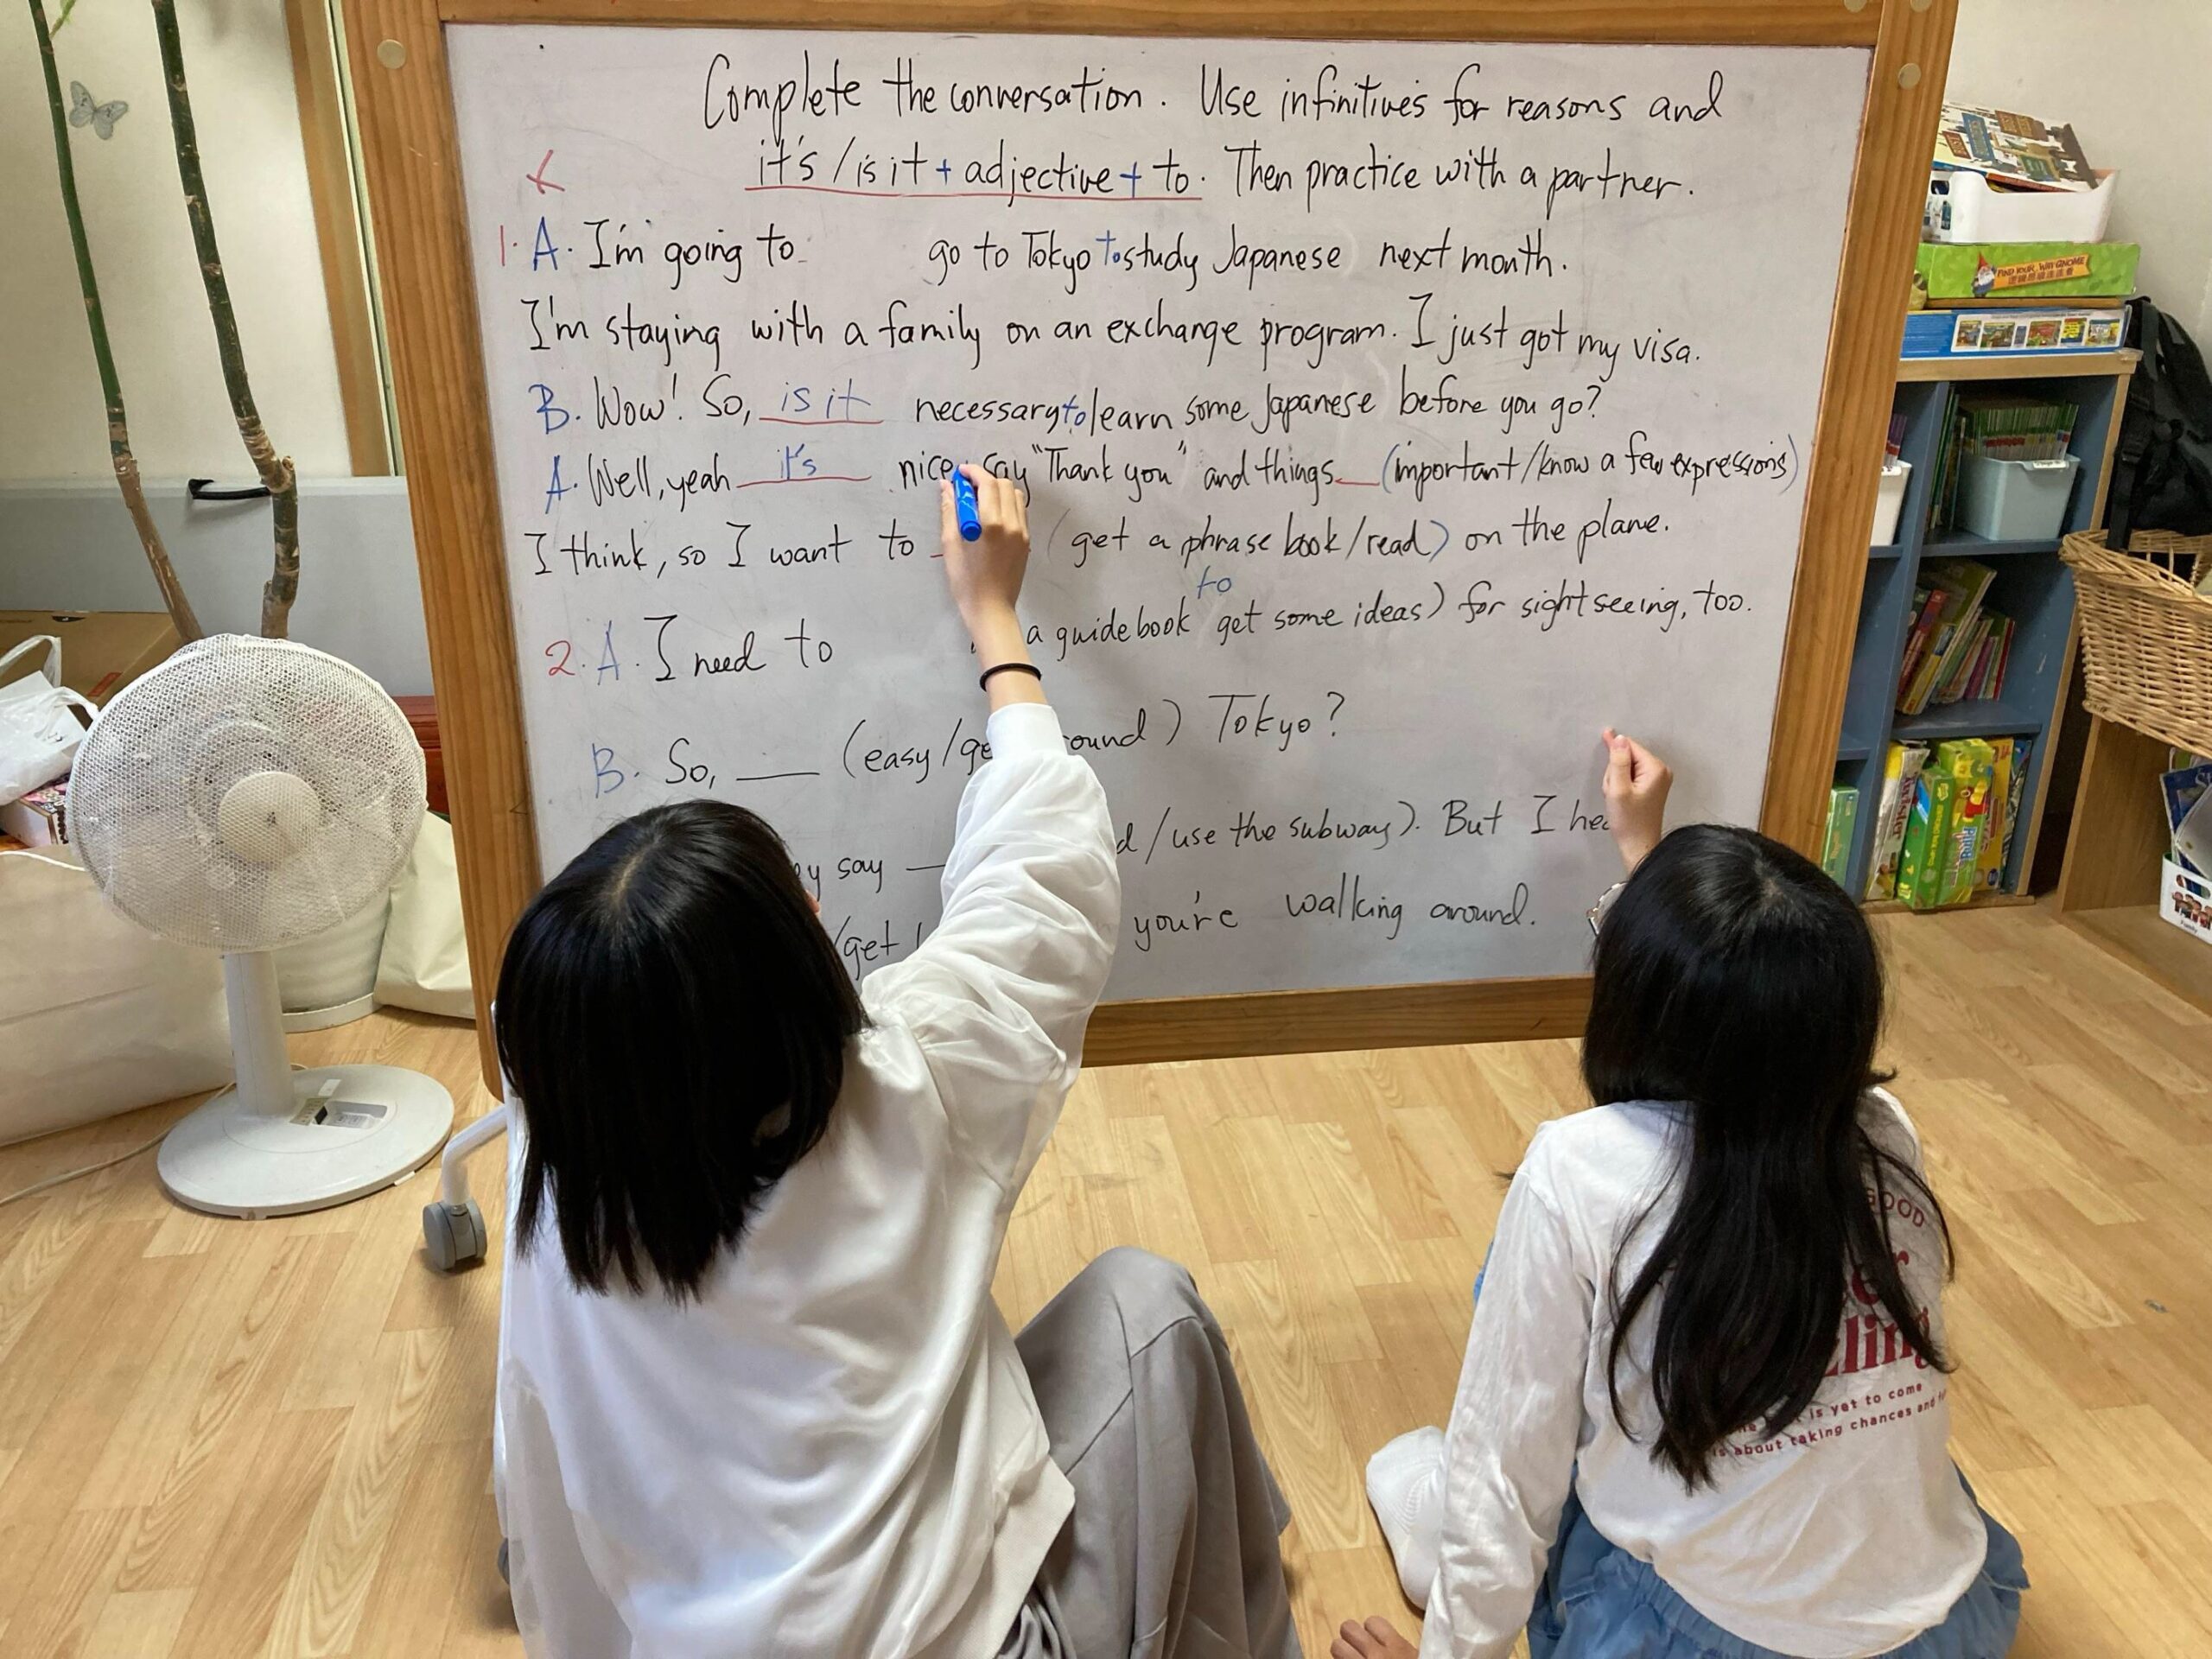 Complete the conversation. Use infinitives for reasons and
it's / is it + adjective + to. Then practice with a partner.
1. A. I'm going to go to Tokyo to study Japanese next month.
I'm staying with a family on an exchange program. I just got my visa.
B. Wow! So, is it necessary to learn some Japanese before you go?
A. Well, yeah it's nice say "Thank you" and things (important/know a few expressions)
I think, so I want to (get a phrase book/read) on the plane.
to
2. A. I need to a guidebook get some ideas) for sightseeing, too.
B. So, ___ (easy/ Tokyo?
say / use the subway). But I
/get you're walking around.
FIND YOUR WAY GNOME
GOOD
is yet to come
is about taking chances and